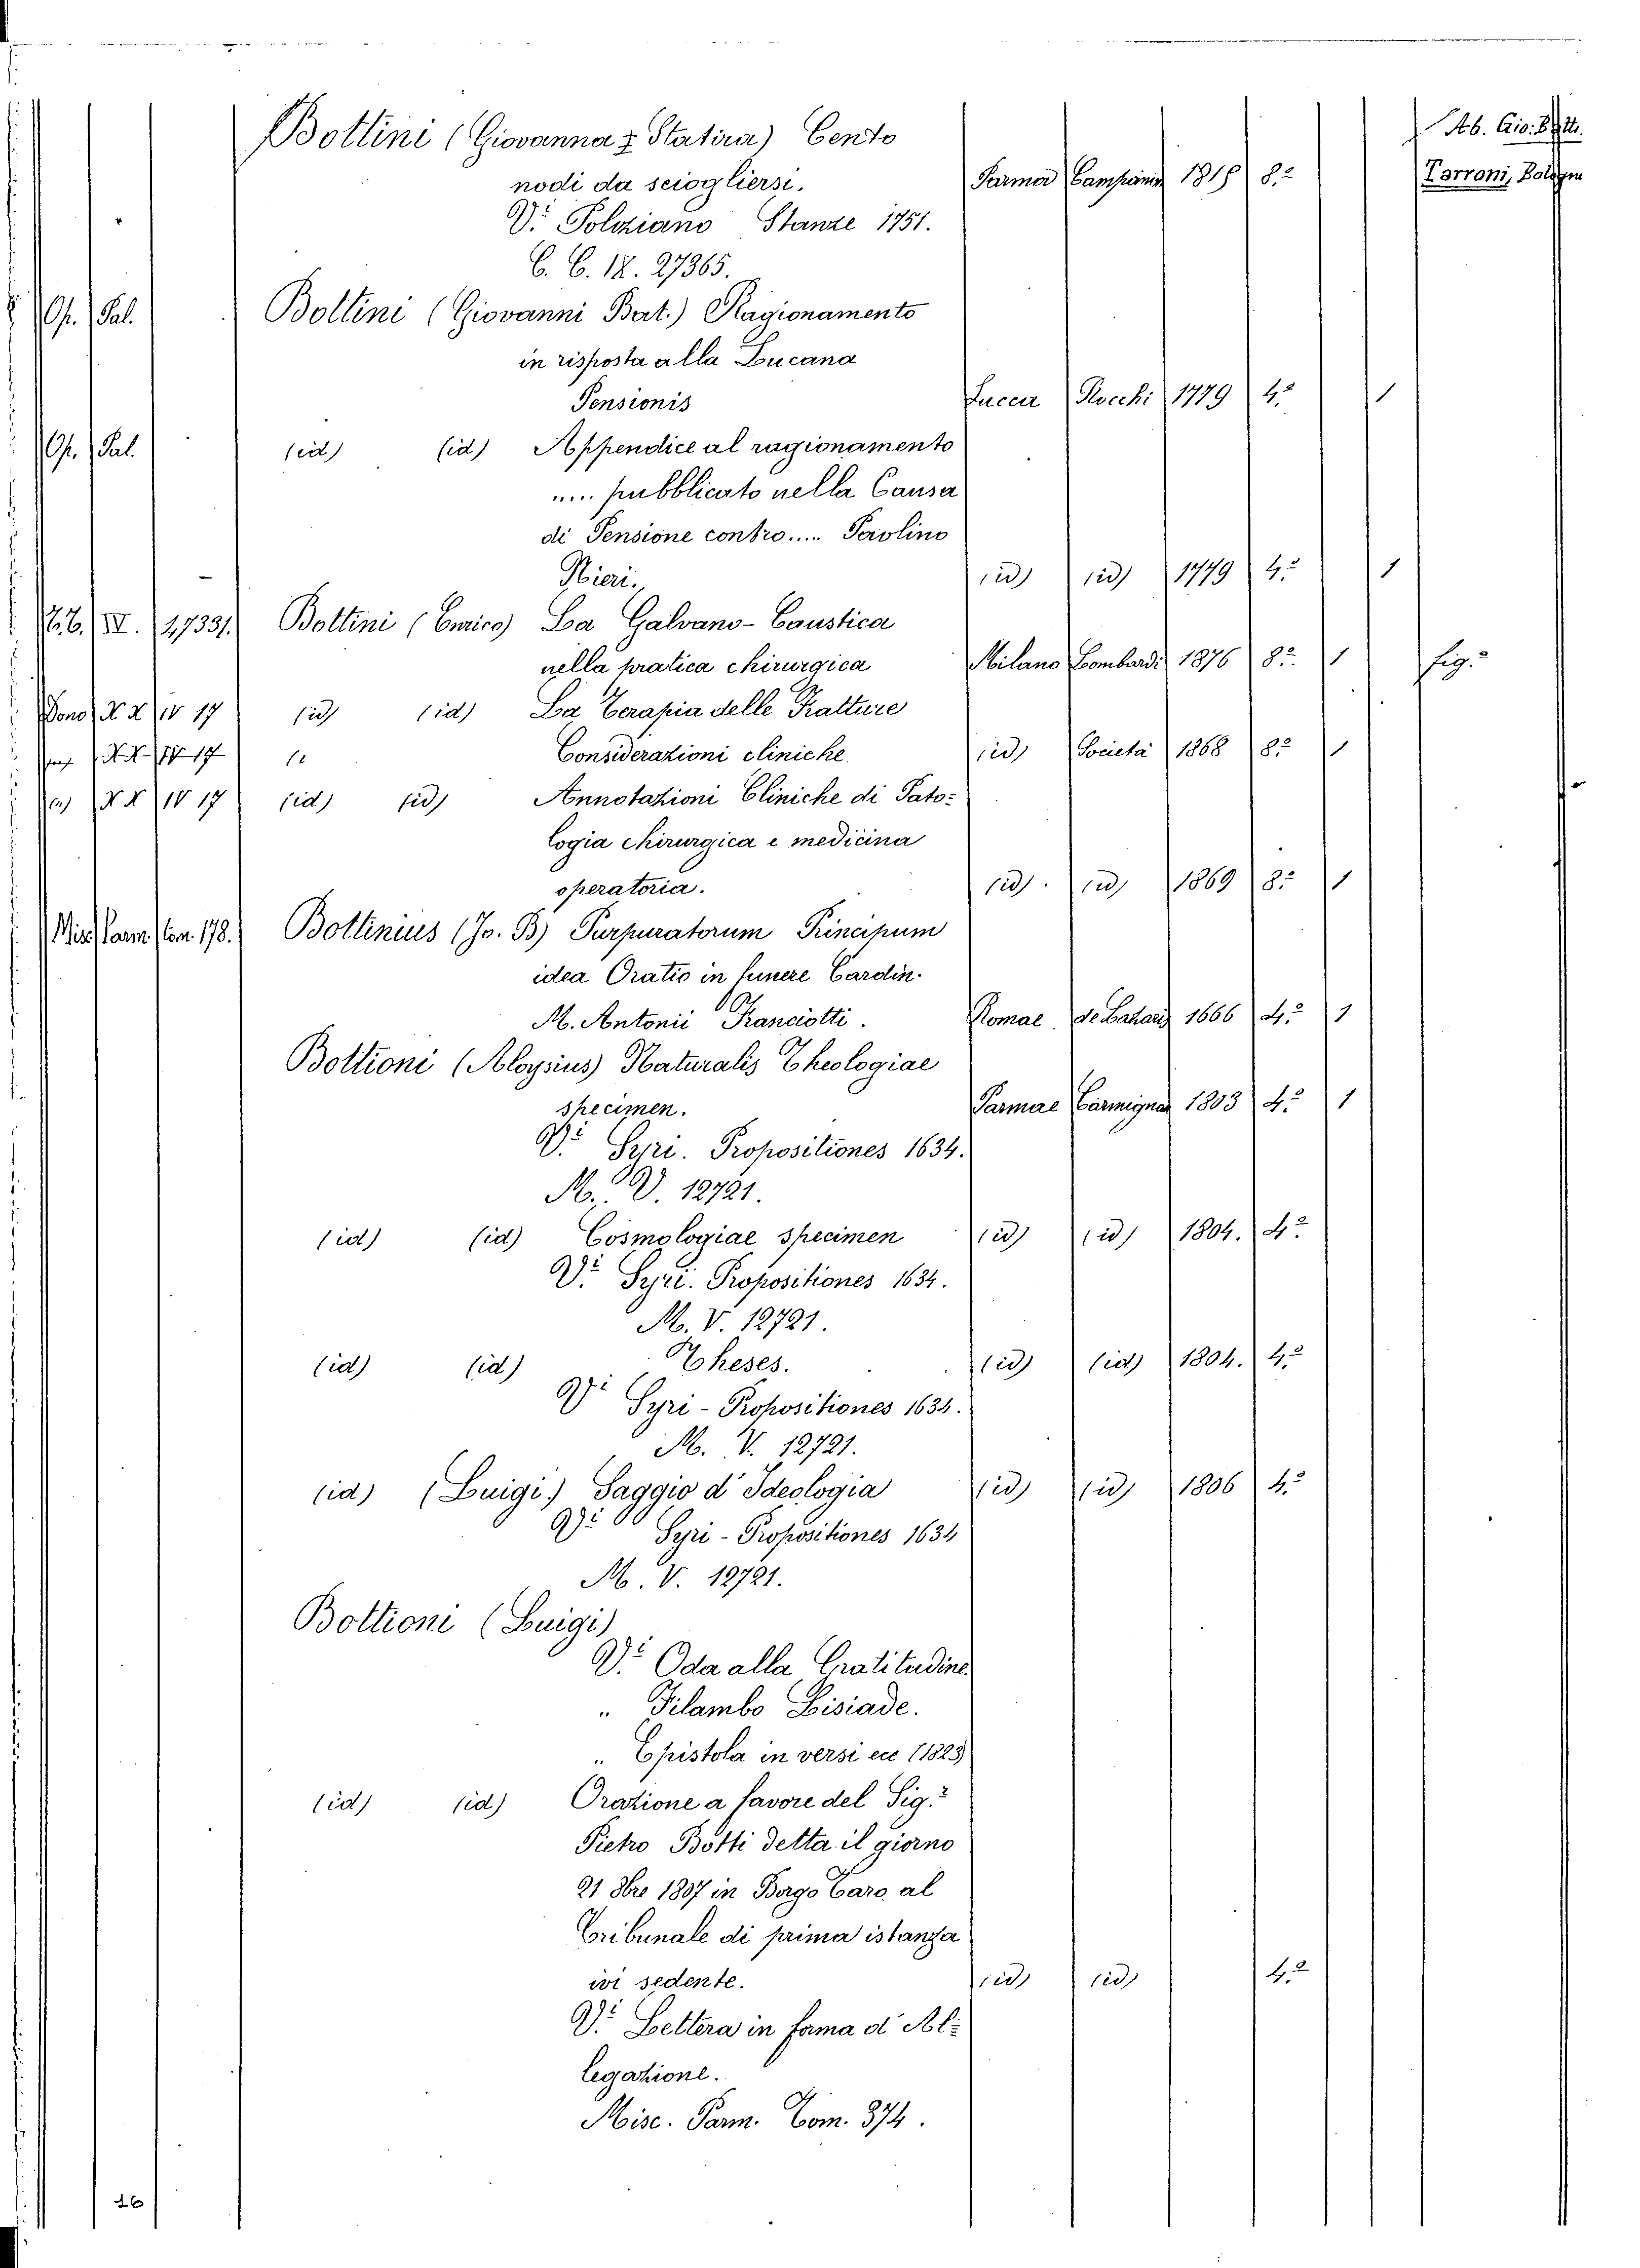 Bottini (Giovanna & Statira) Cento
nodi da sciogliersi. Parma 181 8.º Ab. Gio. Batt.
Torroni, Bologna
Vi Poliziano Stanze 1751.
C. C. IX. 27365.
Op. Pal. Bottini (Giovanni Bat.) Ragionamento
in risposta alla Lucana
Pensionis Lucca Rocchi 1779 4º 1
Op. Pal. (id) (id) Appendice al ragionamento
.... pubblicato nella Causa
di Pensione contro.... Paolino
Nieri. (id) (id) 1779 4º 1
IV. 27331. Bottini (Enrico) La Galvano-Caustica
nella pratica chirurgica Milano Lombardi 1876 8º 1 fig.º
Dono X X IV 17 (id) (id) La Terapia delle Fratture
Considerazioni cliniche (id) Società 1868 8º 1
X X IV 17 (id) (id) Annotazioni Cliniche di Pato=
logia chirurgica e medicina
operatoria. (id). (id) 1869 8º 1
Misc. Parm. tom. 178. Bottinius (Jo. B) Purpuratorum Principum
idea Oratio in funere Cardin.
M. Antonii Franciotti. Romae de Lazaris 1666 4º 1
Bottioni (Aloysius) Naturalis Theologiae
specimen. Parmae Carmignani 1803 4º 1
Vi Syri. Propositiones 1634.
M. V. 12721.
(id) (id) Cosmologiae specimen (id) (id) 1804. 4º
Vi Syri. Propositiones 1634.
M. V. 12721.
(id) (id) Theses. (id) (id) 1804. 4º
Vi Syri - Propositiones 1634.
M. V. 12721.
(id) (Luigi) Saggio d'Ideologia (id) (id) 1806 4º
Vi Syri - Propositiones 1634
M. V. 12721.
Bottioni (Luigi)
Vi Oda alla Gratitudine
" Filambo Lisiade.
" Epistola in versi ecc (1823)
(id) (id) Orazione a favore del Sig.r
Pietro Botti detta il giorno
21 8bre 1807 in Borgo Taro al
Tribunale di prima istanza
ivi sedente. (id) (id) 4º
Vi Lettera in fama d'Al=
legazione.
Misc. Parm. Tom. 374.
26